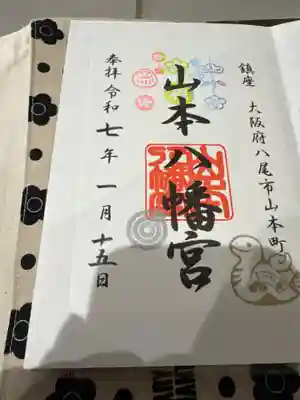 鎮座 大阪府八尾市山本町
山本八幡宮
奉拝 令和七年 一月 十五日